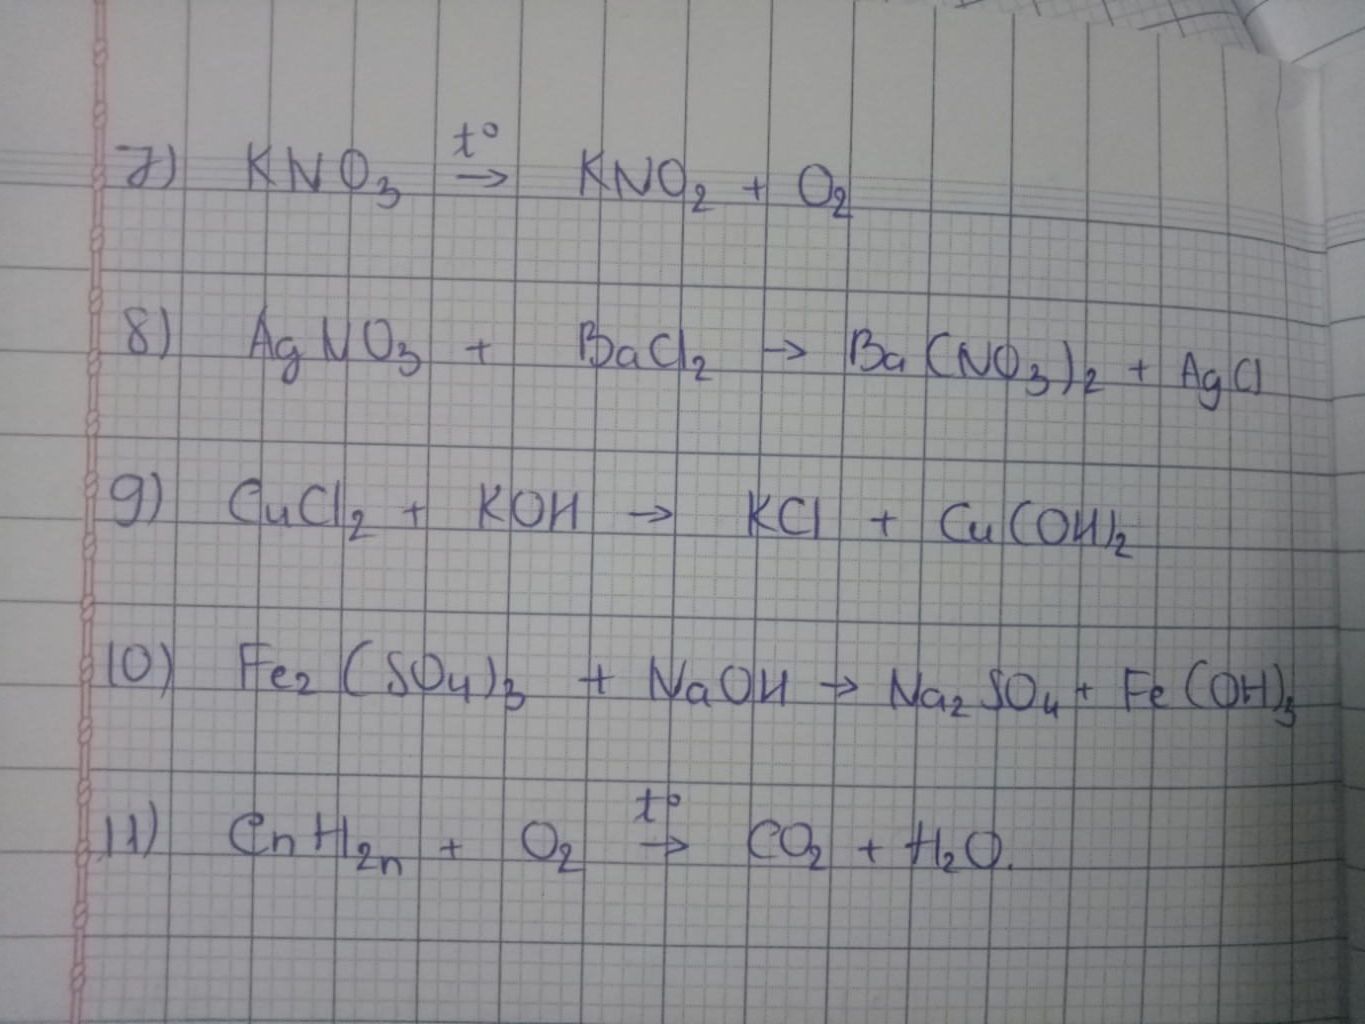 7) KNO₃ t° → KNO₂ + O₂
8) AgNO₃ + BaCl₂ → Ba(NO₃)₂ + AgCl
9) CuCl₂ + KOH → KCl + Cu(OH)₂
10) Fe₂(SO₄)₃ + NaOH → Na₂SO₄ + Fe(OH)₃
11) CnH₂n + O₂ t° → CO₂ + H₂O.